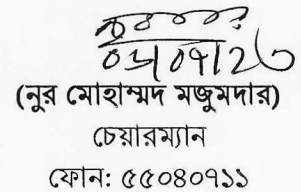 ০১/০৭/২৬
(নুর মোহাম্মদ মজুমদার)
চেয়ারম্যান
ফোন: ৫৫০৪০৭১১